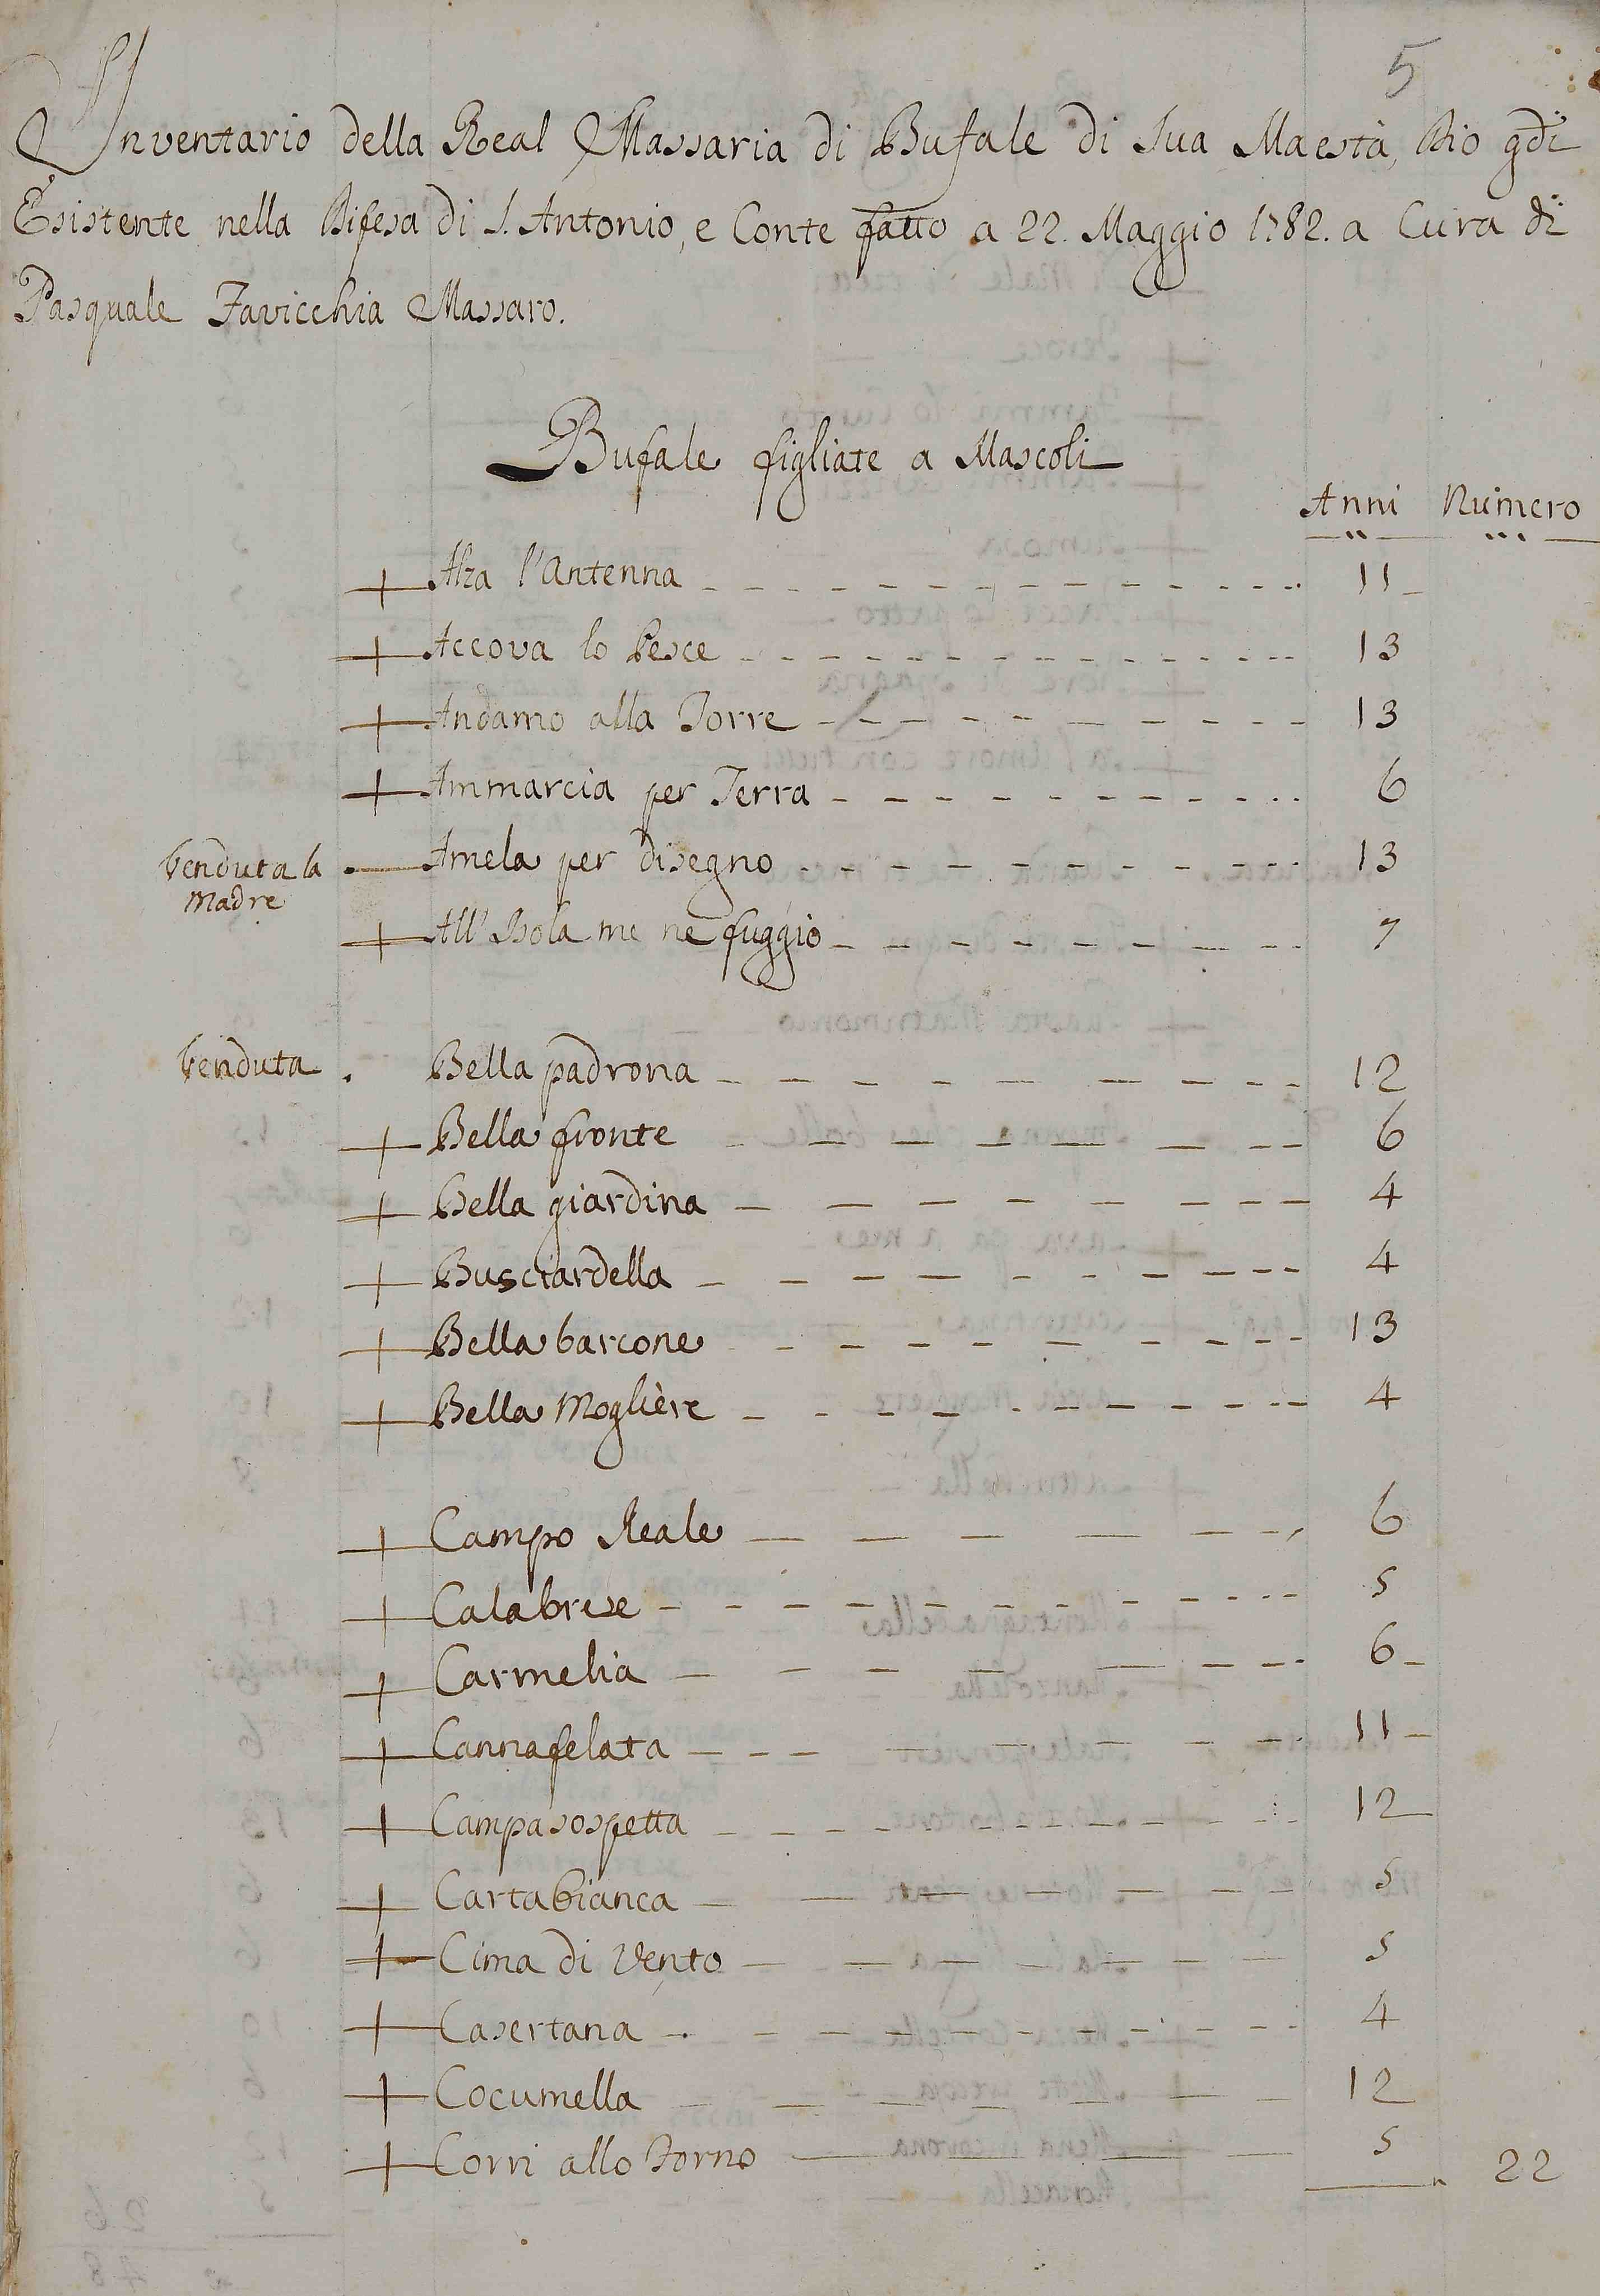 5
Inventario della Real Massaria di Bufale di Sua Maestà, Dio gdi
Esistente nella Difesa di S. Antonio, e Conte fatto a 22. Maggio 1782. a Cura di
Pasquale Favicchia Massaro.
Bufale figliate a Mascoli
Anni Numero
+ Alza l'Antenna 11
+ Accova lo Pesce 13
+ Andamo alla Torre 13
+ Ammarcia per Terra 6
Venduta la Madre Amela per disegno 13
+ All'Isola me ne fuggio 7
Venduta . Bella padrona 12
+ Bella fronte 6
+ Bella giardina 4
+ Busciardella 4
+ Bella barcone 13
+ Bella Moglière 4
+ Campo Reale 6
+ Calabrese 5
+ Carmelia 6
+ Cannafelata 11
+ Campasospetta 12
+ Cartabianca 5
+ Cima di Vento 5
+ Casertana 4
+ Cocumella 12
+ Corri allo Forno 5 22